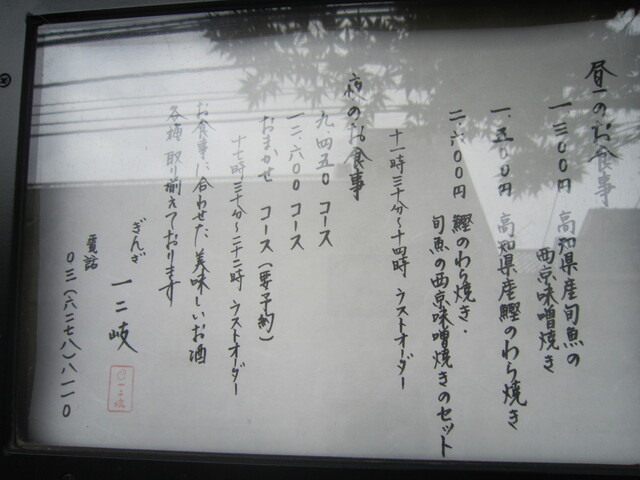 昼のお食事
一、三〇〇円 高知県産旬魚の
西京味噌焼き
一、五〇〇円 高知県産鰹のわら焼き
二、六〇〇円 鰹のわら焼き・
旬魚の西京味噌焼きのセット
十一時三十分〜十四時 ラストオーダー
夜のお食事
九、四五〇 コース
一二、六〇〇 コース
おまかせ コース(要予約)
十七時三十分〜二十二時 ラストオーダー
お食事に合わせた 美味しいお酒
各種 取り揃えております
ぎんぎ
一二岐
電話
〇三(六二七八)八一一〇